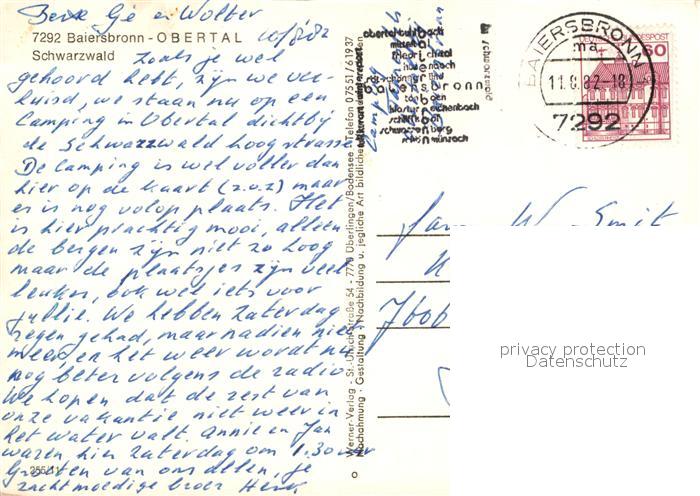 Beste Gé en Wolter
7292 Baiersbronn - OBERTAL
10/8/82
Schwarzwald
Zoals je wel
gehoord hebt, zijn we ver-
huisd, we staan nu op een
Camping in Obertal dichtbij
de Schwarzwald hoog strasse.
De Camping is wel voller dan
hier op de kaart (z.o.z) maar
er is nog volop plaats. Het
is hier prachtig mooi, alleen
de bergen zijn niet zo hoog
maar de plaatsjes zijn veel
leuker, ook wel iets voor
jullie. We hebben Zaterdag
regen gehad, maar nadien niet
meer, en het weer wordt nu
nog beter volgens de radio.
We hopen dat de rest van
onze vakantie niet weer in
het water valt. Annie en Jan
waren hier Zaterdag om 1.30 uur
Groeten van ons allen, je
zachtmoedige broer Henk
255/11
Werner-Verlag - St.-Ulrich-Straße 54 - 7770 Überlingen/Bodensee - Telefon 07551/61937
Nachahmung - Gestaltung - Nachbildung u. jegliche Art bildlicher
Camping
obertal buhlbach
mitteltal
friedrichstal
huzenbach
röt-schönmünz
baiersbronn
kloster reichenbach
schwarzenberg
schönmünzach
im schwarzwald
BAIERSBRONN
ma
11.8.82-18
7292
DEUTSCHE BUNDESPOST
60
Fam W. Smit
7606
privacy protection
Datenschutz